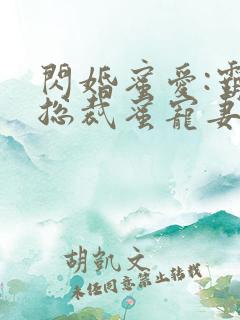 閃婚蜜愛:霸
總裁蜜寵妻
胡凱文
未任同意禁止转载